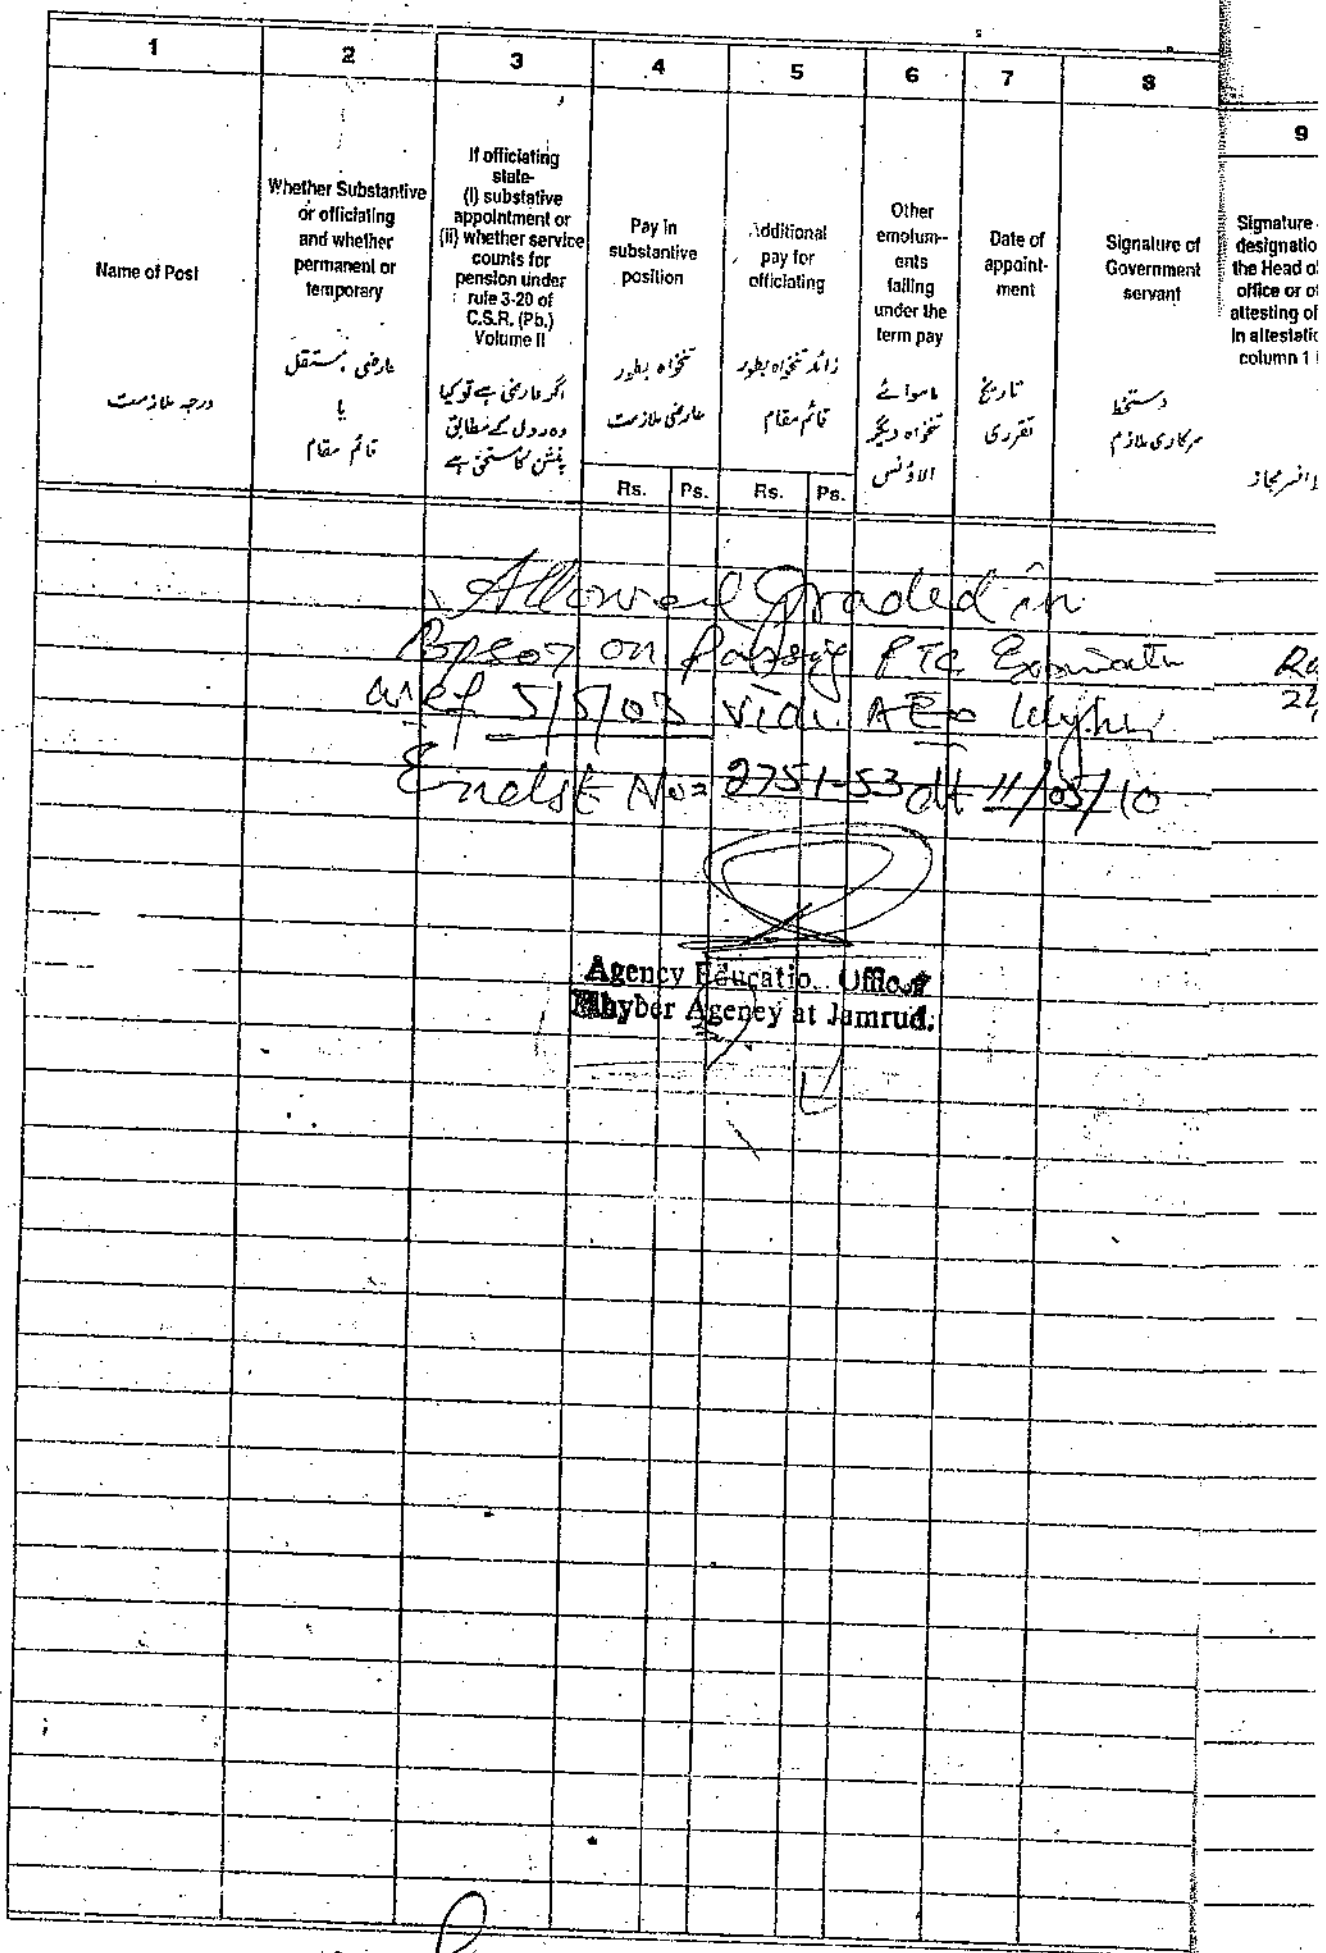 1 2 3 4 5 6 7 8 9
Name of Post
درجہ ملازمت
Whether Substantive
or officiating
and whether
permanent or
temporary
عارضی مستقل
یا
قائم مقام
If officiating
state-
(I) substative
appointment or
(ii) whether service
counts for
pension under
rule 3-20 of
C.S.R. (Pb.)
Volume II
اگر عارضی ہے تو کیا
وہ رول کے مطابق
پنشن کا مستحق ہے
Pay in
substantive
position
تنخواہ بطور
عارضی ملازمت
Rs. Ps.
Additional
pay for
officiating
زائد تنخواہ بطور
قائم مقام
Rs. Ps.
Other
emolum--
ents
falling
under the
term pay
ماسوائے
تنخواہ دیگر
الاؤنس
Date of
appoint-
ment
تاریخ
تقرری
Signature of
Government
servant
دستخط
سرکاری ملازم
Signature
designatio
the Head o
office or o
attesting of
in attestatio
column 1
افسر مجاز
Allowed Graded in
on Passing PTC
wef 5/5/03 vide AEO
Endst No= 2751-53 dt 11/05/10
Agency Educatio. Officer
Khyber Agency at Jamrud.